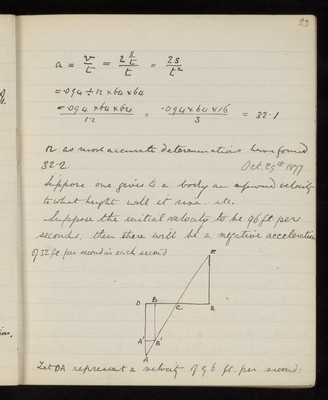 23
a = v/t = 2 s/t / t = 2s/t²
= .094 ÷ 12 × 64 × 64
= .094 × 64 × 64 / 12 = .094 × 64 × 16 / 3 = 32.1
or as most accurate determinations have found
32.2. Oct. 29th 1877
Suppose one gives to a body an upward velocity
to what height will it rise. etc.
Suppose the initial velocity to be 96 ft per
seconds, then there will be a negative acceleration
of 32 ft. per second in each second
E
O B C R
A' B'
A
Let OA represent a velocity of 96 ft. per second: